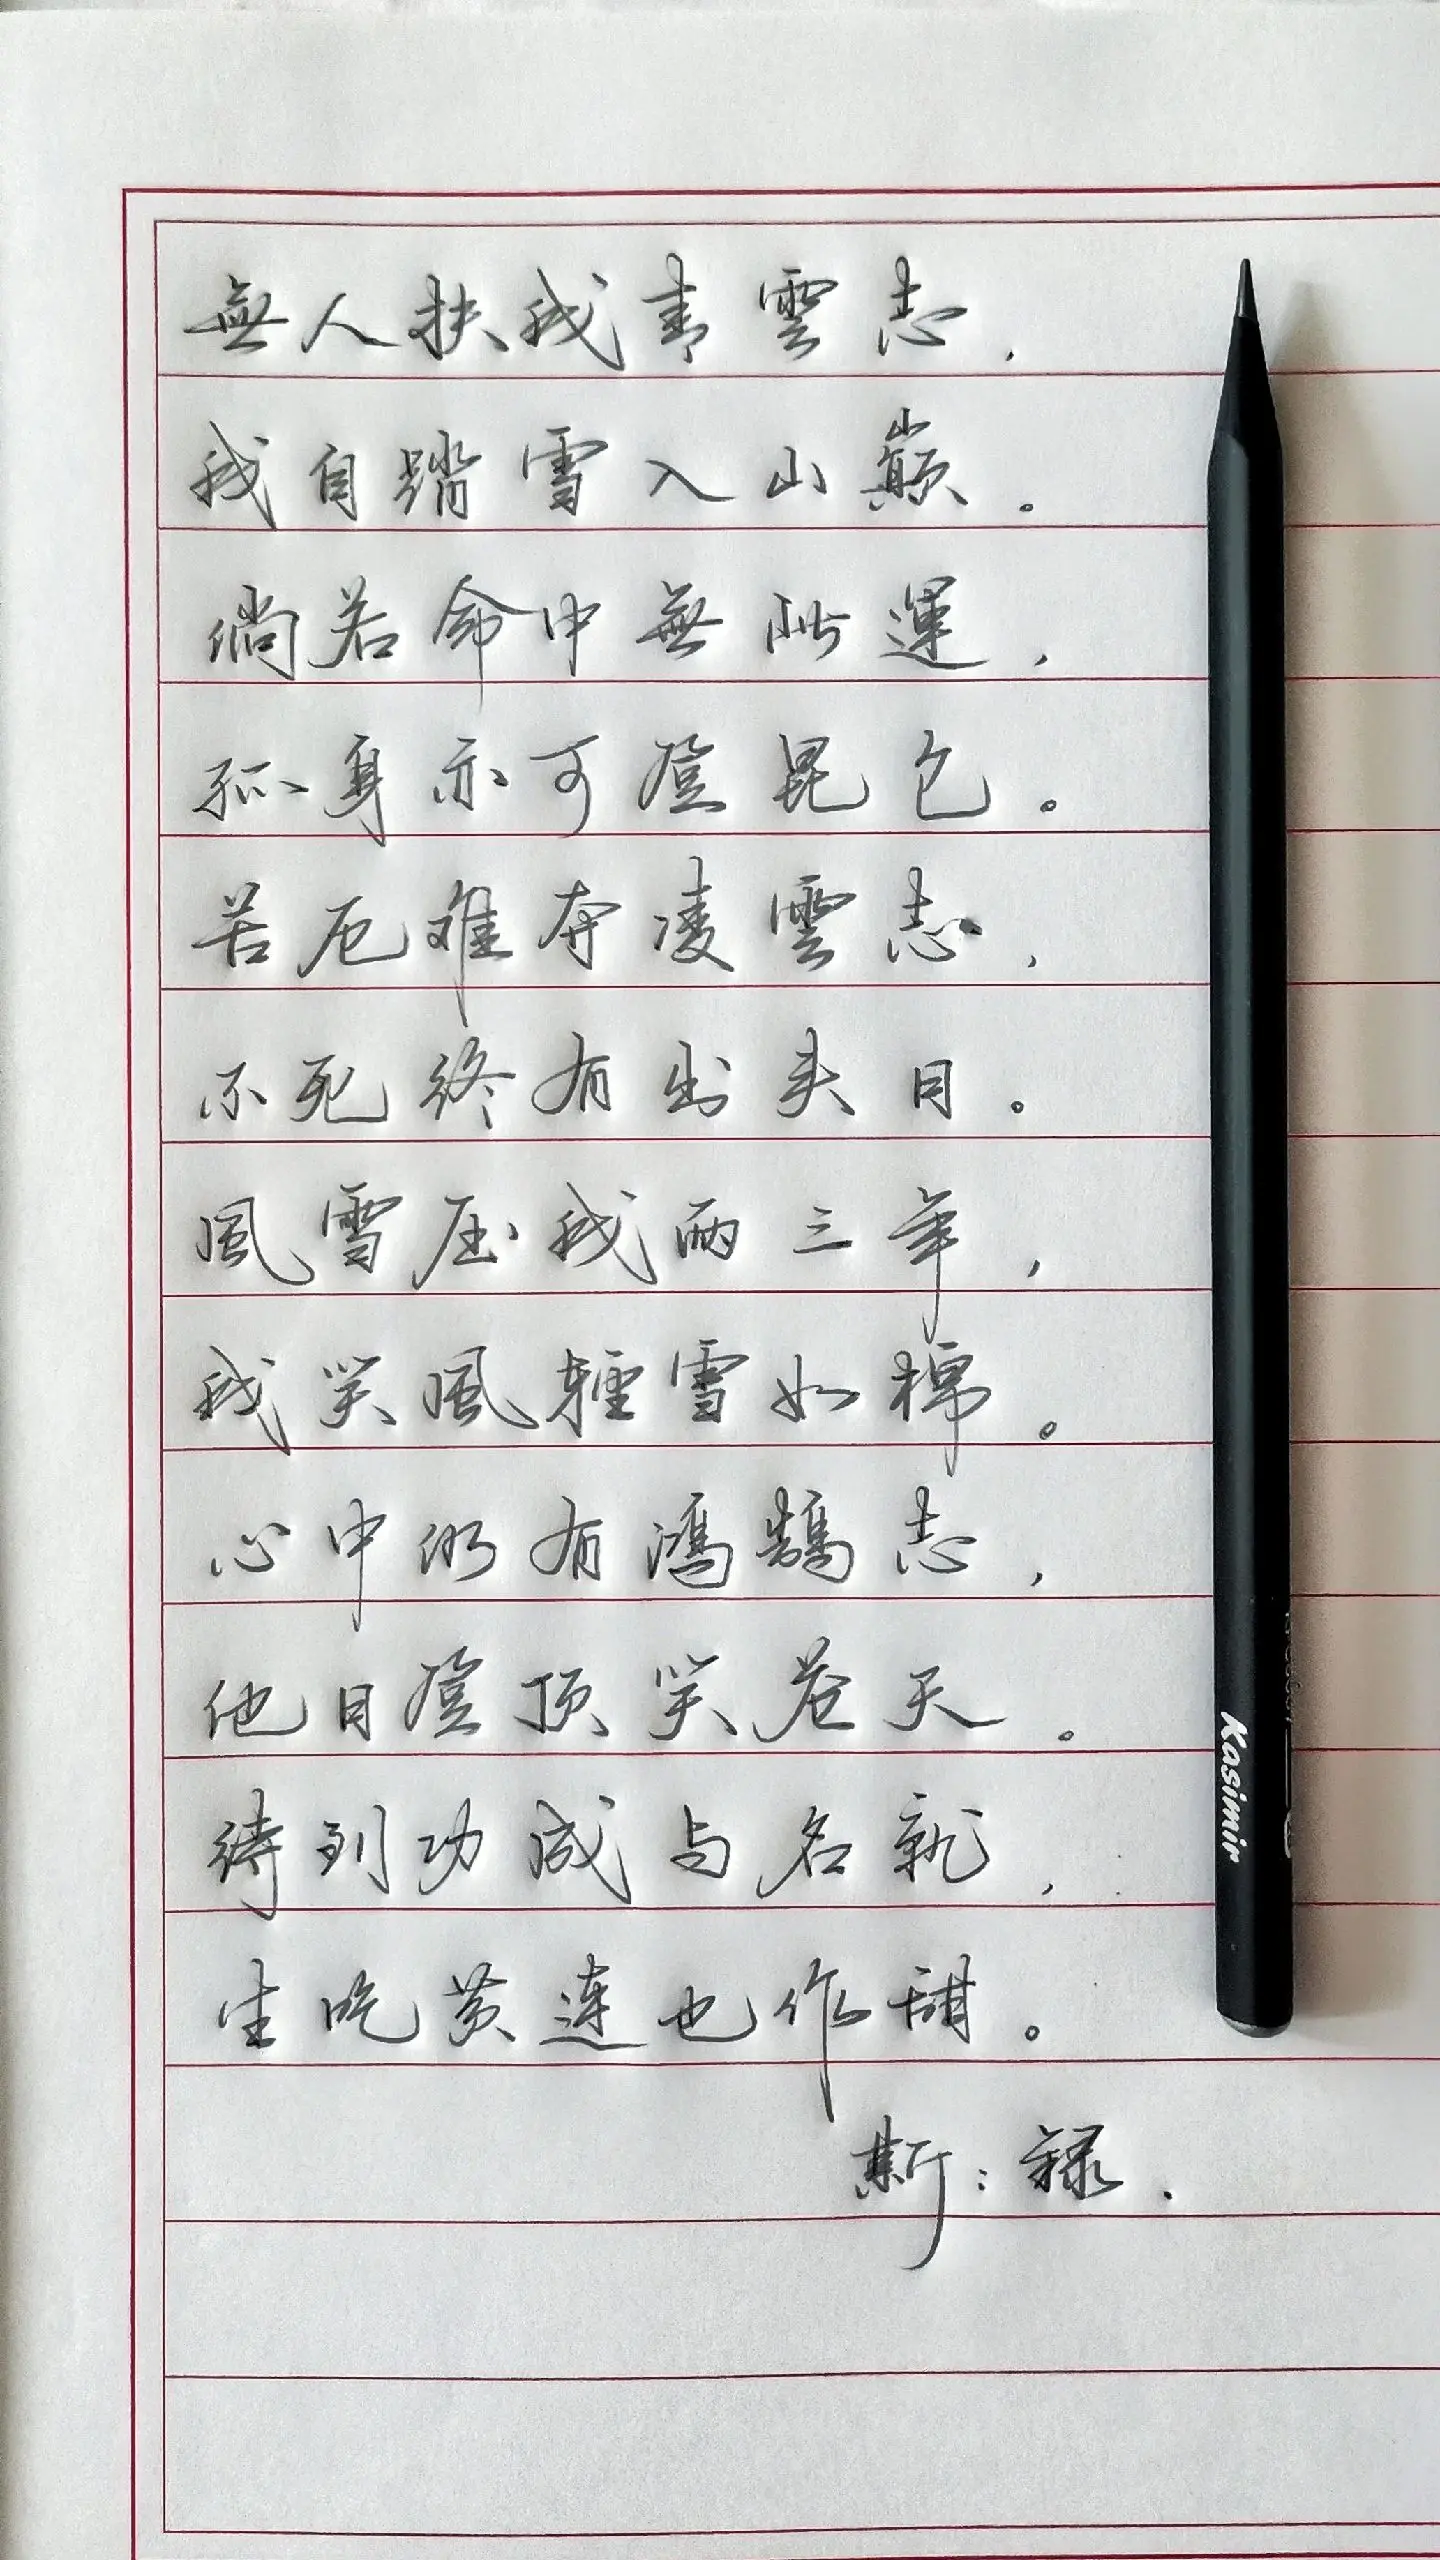 無人扶我青雲志，
我自踏雪入山巔。
倘若命中無此運，
孤身亦可登昆仑。
苦厄难夺凌雲志，
不死终有出头日。
風雪压我两三年，
我笑風輕雪如棉。
心中仍有鴻鵠志，
他日登顶笑苍天。
待到功成与名就，
生吃黄连也作甜。
斯：禄.
Kasimir